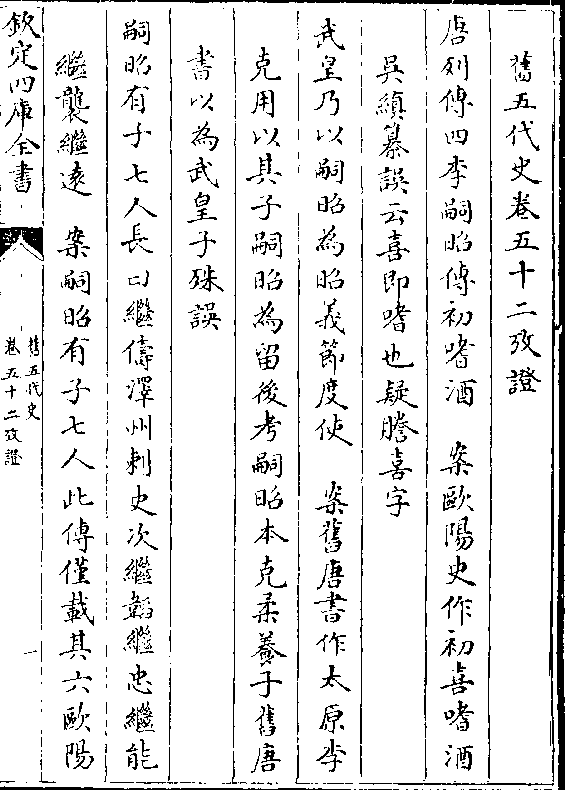 舊五代史卷五十二攷證
唐列傳四李嗣昭傳初嗜酒　案歐陽史作初喜嗜酒
吳縝纂誤云喜即嗜也疑謄喜字
武皇乃以嗣昭為昭義節度使　案舊唐書作太原李
克用以其子嗣昭為留後考嗣昭本克柔養子舊唐
書以為武皇子殊誤
嗣昭有子七人長曰繼儔澤州刺史次繼韜繼忠繼能
繼襲繼遠　案嗣昭有子七人此傳僅載其六歐陽
欽定四庫全書
舊五代史
卷五十二攷證
一